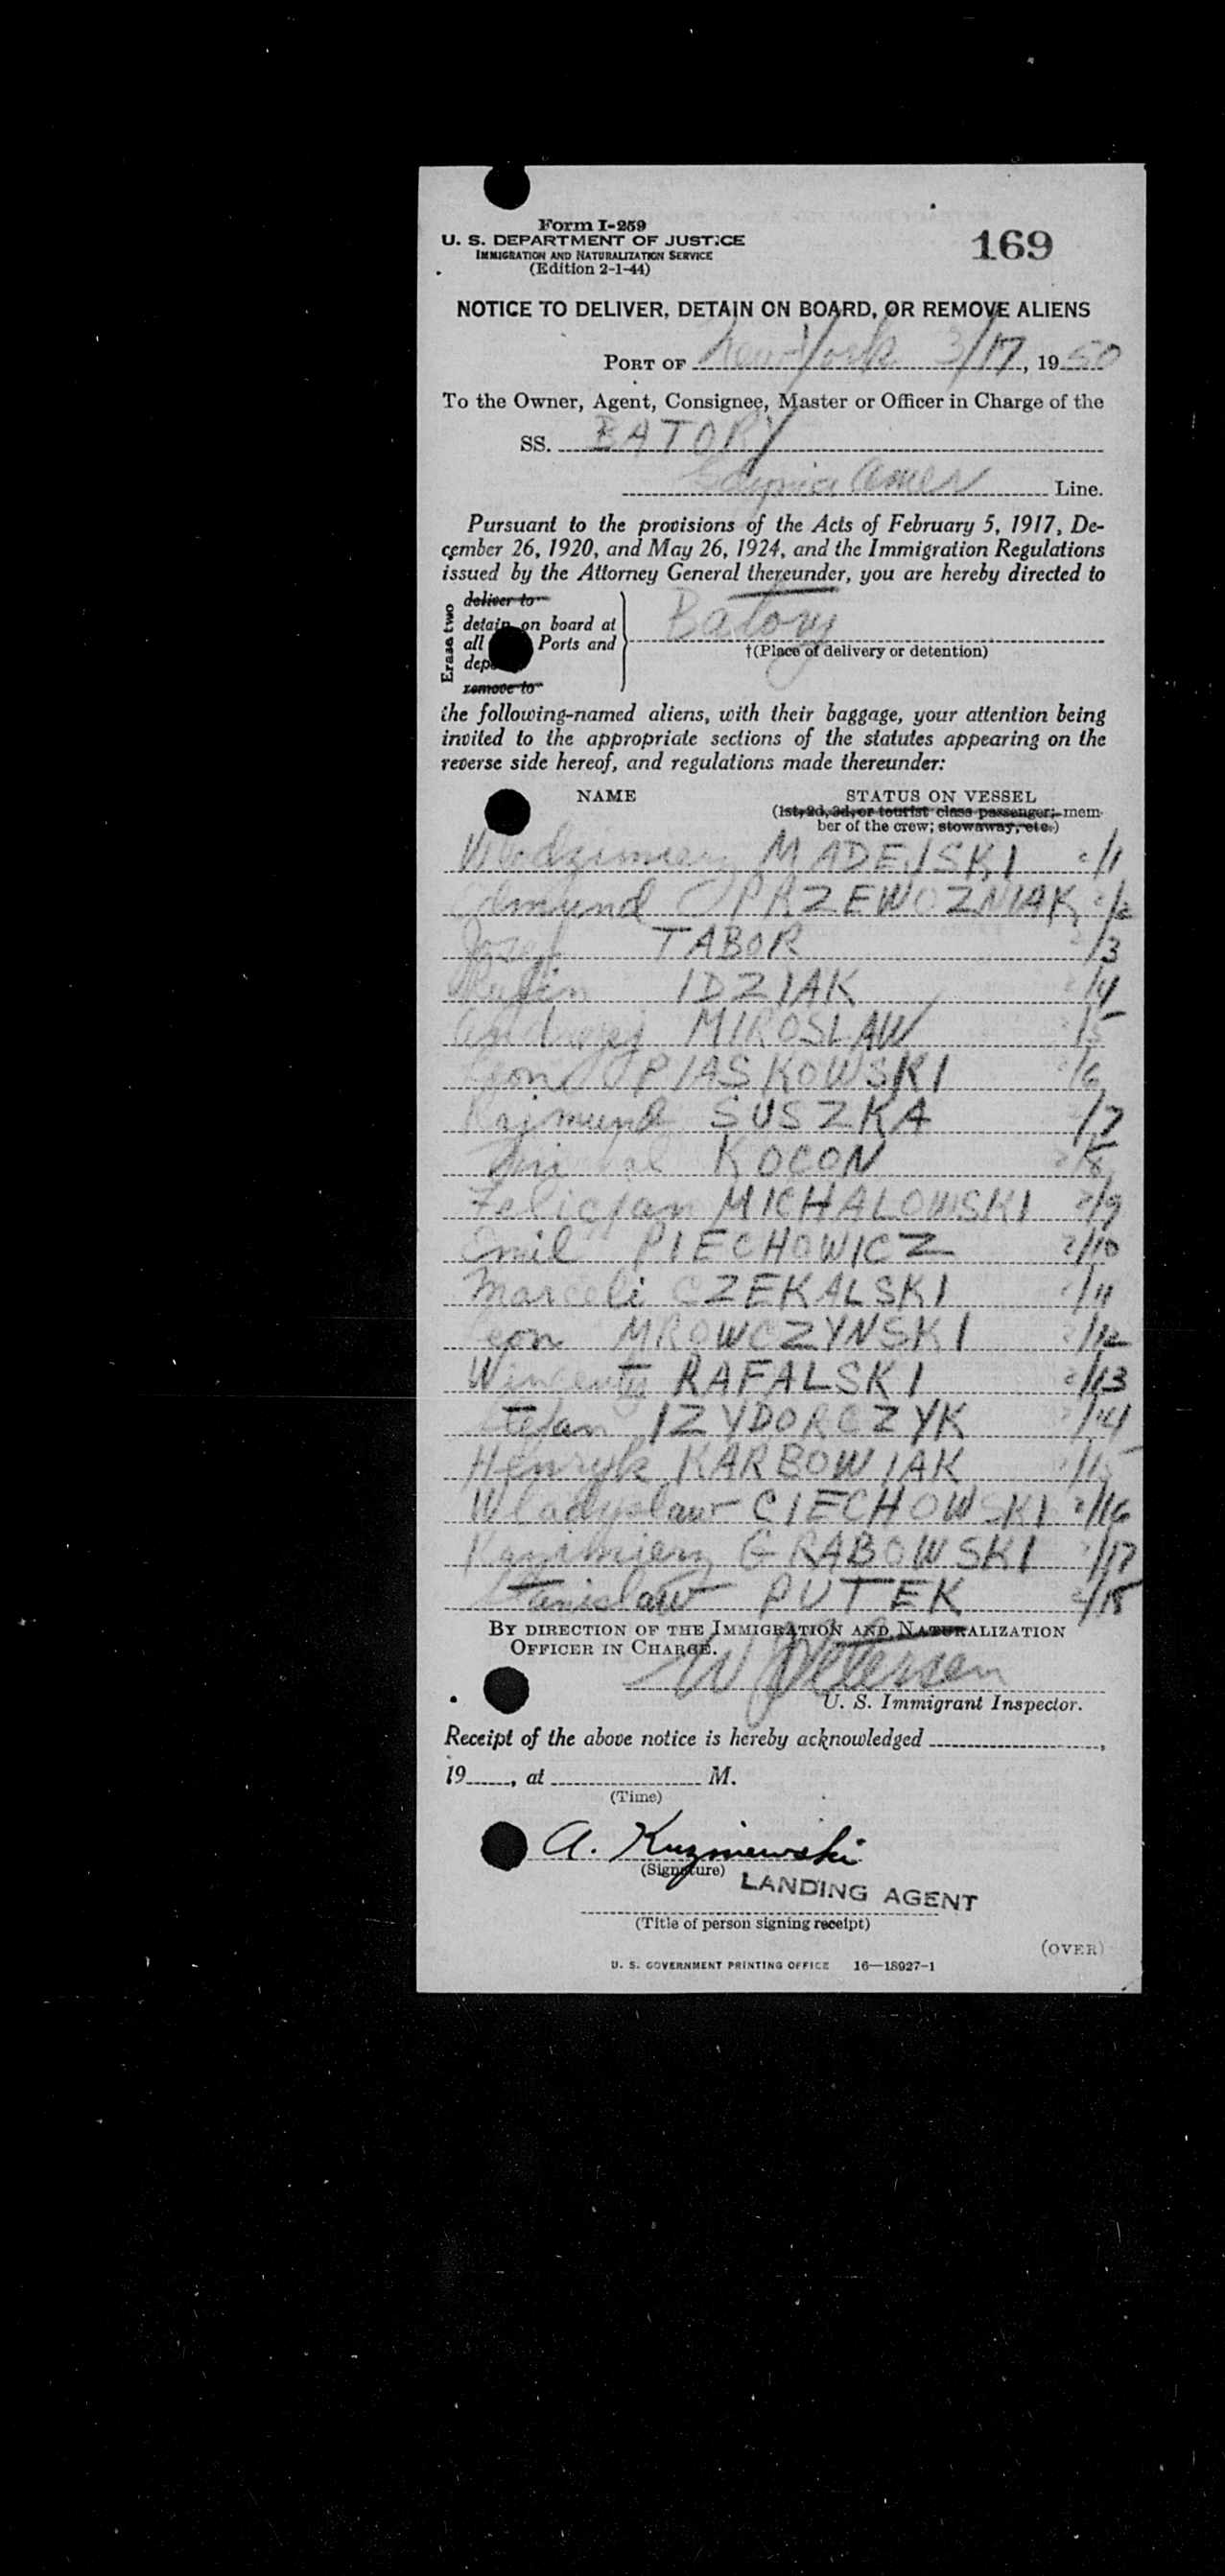 Form I-259
U. S. DEPARTMENT OF JUSTICE
IMMIGRATION AND NATURALIZATION SERVICE
(Edition 2-1-44)
169
NOTICE TO DELIVER, DETAIN ON BOARD, OR REMOVE ALIENS
PORT OF New York 3/17, 1950
To the Owner, Agent, Consignee, Master or Officer in Charge of the
SS. BATORY
Gdynia Amer Line.
Pursuant to the provisions of the Acts of February 5, 1917, De-
cember 26, 1920, and May 26, 1924, and the Immigration Regulations
issued by the Attorney General thereunder, you are hereby directed to
Erase two
deliver to
detain on board at
all Ports and
remove to
Batory
†(Place of delivery or detention)
the following-named aliens, with their baggage, your attention being
invited to the appropriate sections of the statutes appearing on the
reverse side hereof, and regulations made thereunder:
NAME STATUS ON VESSEL
(1st, 2d, 3d, or tourist class passenger; mem-
ber of the crew; stowaway, etc.)
Wlodzimierz MADEJSKI 2/1
Edmund PRZEWOZNIAK 2/2
Jozef TABOR 2/3
IDZIAK 2/4
Andrzej MIROSLAW 2/5
Leon PIASKOWSKI 2/6
Rajmund SUSZKA 2/7
KOCON 2/8
Felicjan MICHALOWSKI 2/9
Emil PIECHOWICZ 2/10
Marceli CZEKALSKI 2/11
Leon MROWCZYNSKI 2/12
Wincenty RAFALSKI 2/13
Stefan IZYDORCZYK 2/14
Henryk KARBOWIAK 2/15
Wladyslaw CIECHOWSKI 2/16
Kazimierz GRABOWSKI 2/17
Stanislaw PUTEK 2/18
BY DIRECTION OF THE IMMIGRATION AND NATURALIZATION
OFFICER IN CHARGE.
W Petersen
U. S. Immigrant Inspector.
Receipt of the above notice is hereby acknowledged
19 , at M.
(Time)
A. Kuzniewski
(Signature)
LANDING AGENT
(Title of person signing receipt)
(OVER)
U. S. GOVERNMENT PRINTING OFFICE 16—18927-1